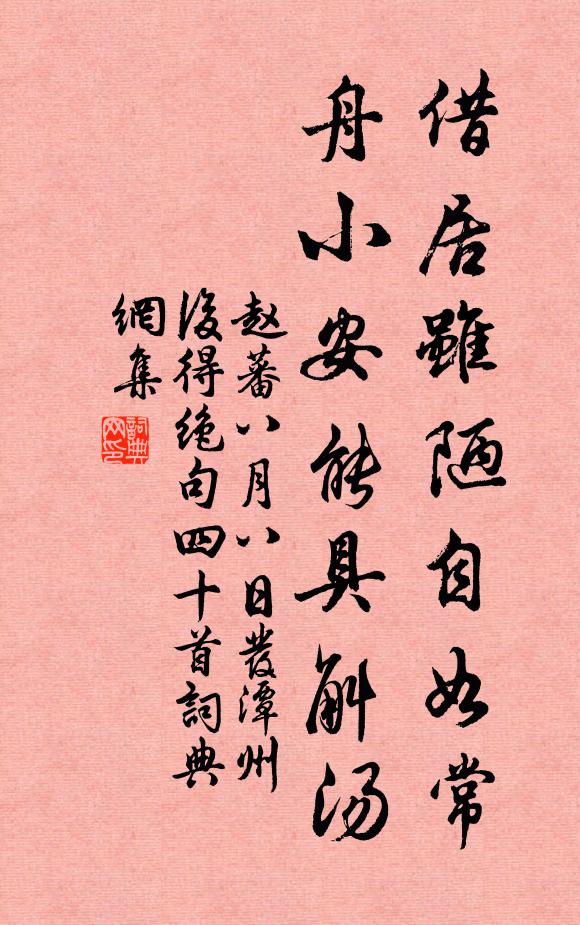 借居雖陋自如常
舟小安能具斛汤
赵蕃八月八日發潭州
後得绝句四十首詞典
網集
詞典
网印